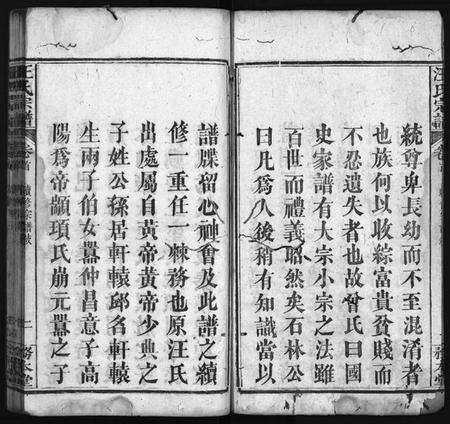 汪氏宗譜
統尊卑長幼而不至混淆者
也族何以收綜富貴貧賤而
不忍遺失者也故曾氏曰國
史家譜有大宗小宗之法雖
百世而禮義昭然矣石林公
曰凡爲人後稍有知識當以
譜牒留心神會及此譜之續
修一重任一棘務也原汪氏
出處屬自黃帝黃帝少典之
子姓公孫居軒轅邱名軒轅
生兩子伯女囂仲昌意子高
陽爲帝顓頊氏崩元囂之子
汪氏宗譜
卷首
續修宗譜
二
務本堂